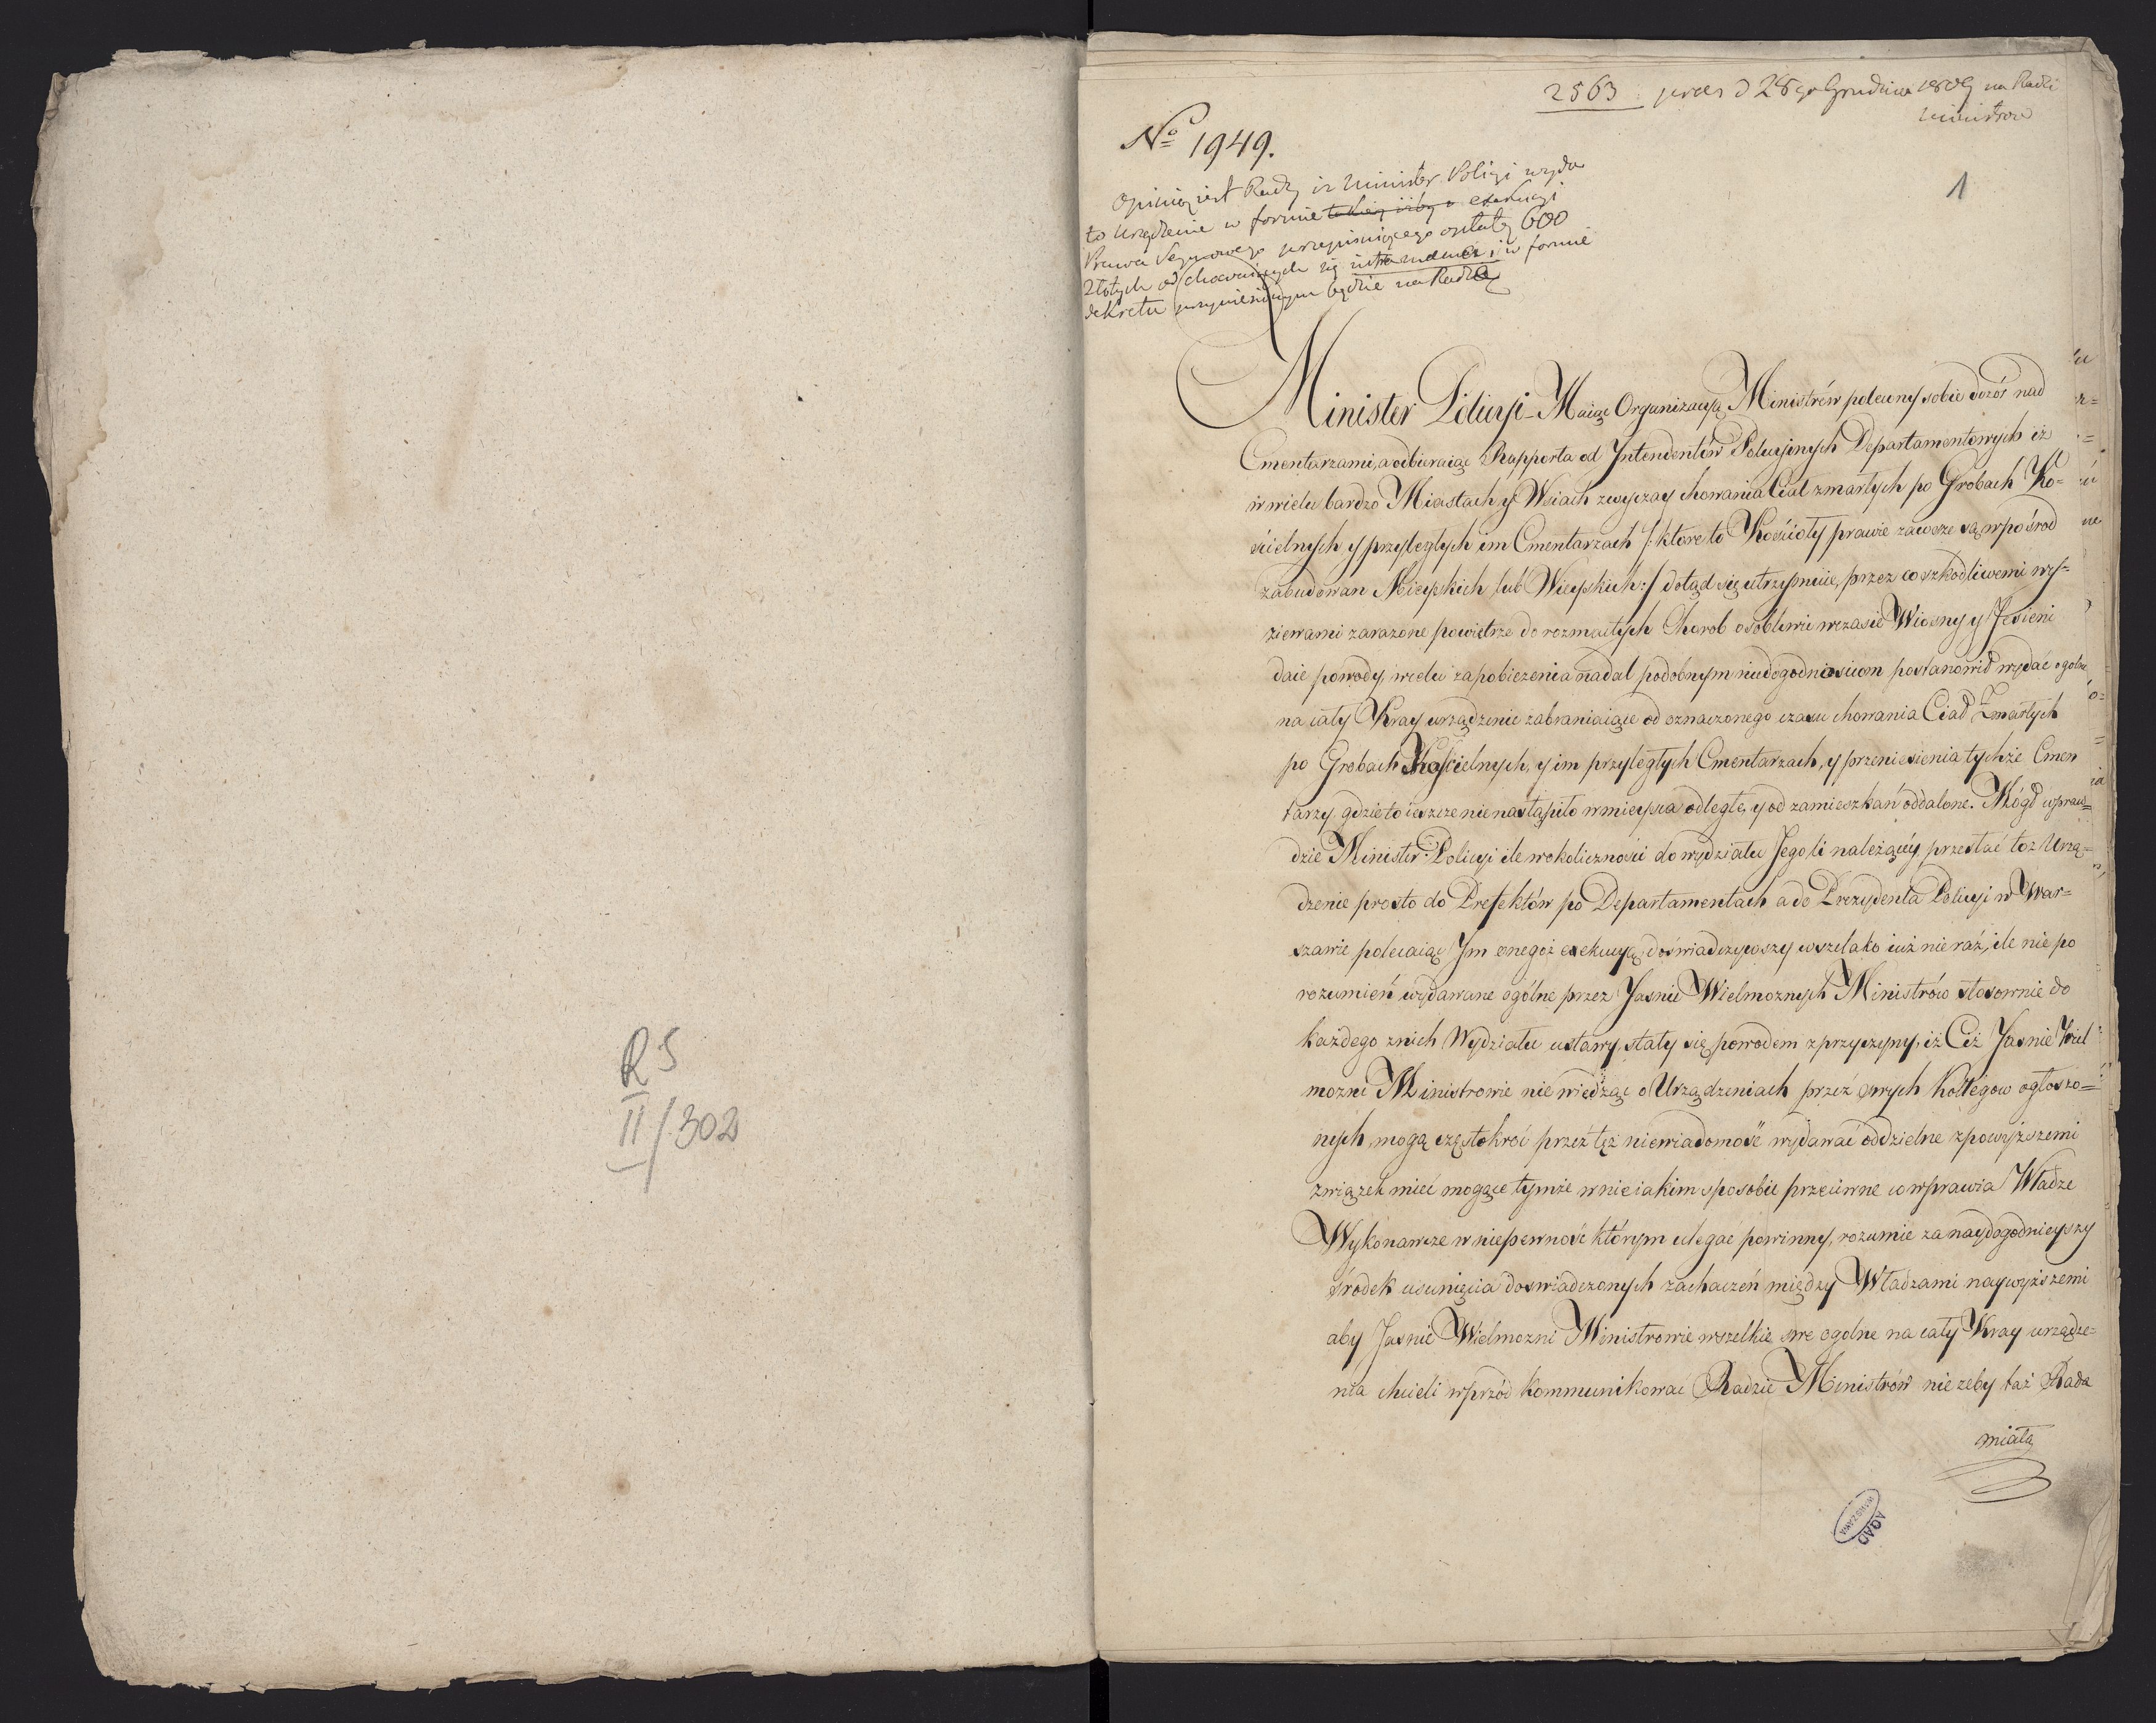 R S
II/302
2563 prez d 28go Grudnia 1809 na Radzie
Ministrow
No 1949.
1
Opinią iest Rady iż Minister Policyi wyda
to Urządzenie w formie takiey iżby o exekucyi
Prawa Seymowego przepisuiącego opłatę 600
Złotych od chowaiących się intra moenia, i w formie
dekretu przyniesionym będzie na Radę
Minister Policyi Maiąc Organizacyą Ministrów polecony sobie dozór nad
Cmentarzami, a odbieraiąc Rapporta od Intendentów Policyjnych Departamentowych iż
w wielu bardzo Miastach y Wsiach zwyczay chowania Ciał zmarłych po Grobach Ko=
ścielnych y przyległych im Cmentarzach /: ktore to Kościoły prawie zawsze są wpośrod
zabudowan Mieyskich lub Wieyskich :/ dotąd się utrzymuie, przez co szkodliwemi wy=
ziewami zarażone powietrze do rozmaitych Chorob osobliwie w czasie Wiosny y Jesieni
daie powody, w celu zapobieżenia nadal podobnym niedogodnościom postanowił wydać ogolne
na cały Kray urządzenie zabraniaiące od oznaczonego czasu chowania Ciał Zmarłych
po Grobach Kościelnych, y im przyległych Cmentarzach, y przeniesienia tychże Cmen
tarzy gdzie to ieszcze nie nastąpiło w mieysca odległe, y od zamieszkań oddalone. Mógł wpraw=
dzie Minister Policyi ile w okoliczności do wydziału Jego li należącéy, przesłać toż Urzą=
dzenie prosto do Prefektów po Departamentach a do Prezydenta Policyi w War=
szawie polecaiąc Im onegoż exekucyą; doświadczywszy wszelako iuż nie raz, ile nie po
rozumień wydawane ogólne przez Jaśnie Wielmożnych Ministrów stosownie do
każdego z nich Wydziału ustawy, stały się powodem z przyczyny, iż Ciż Jaśnie Wiel
możni Ministrowie nie wiedząc o Urządzeniach przez swych Kollegow ogłoszo=
nych mogą częstokroć przez tęż niewiadomość wydawać oddzielne z powyższemi
związek mieć mogące tymże w nieiakim sposobie przeciwne co wprawia Władze
Wykonawcze w niepewność którym ulegać powinny, rozumie za naydogodnieyszy
środek usunięcia doswiadczonych zachaczeń między Władzami naywyższemi
aby Jaśnie Wielmożni Ministrowie wszelkie swe ogolne na cały Kray urządze=
nia chcieli wprzód kommunikować Radzie Ministrów nie żeby taż Rada
miała
AGAD
WARSZAWA